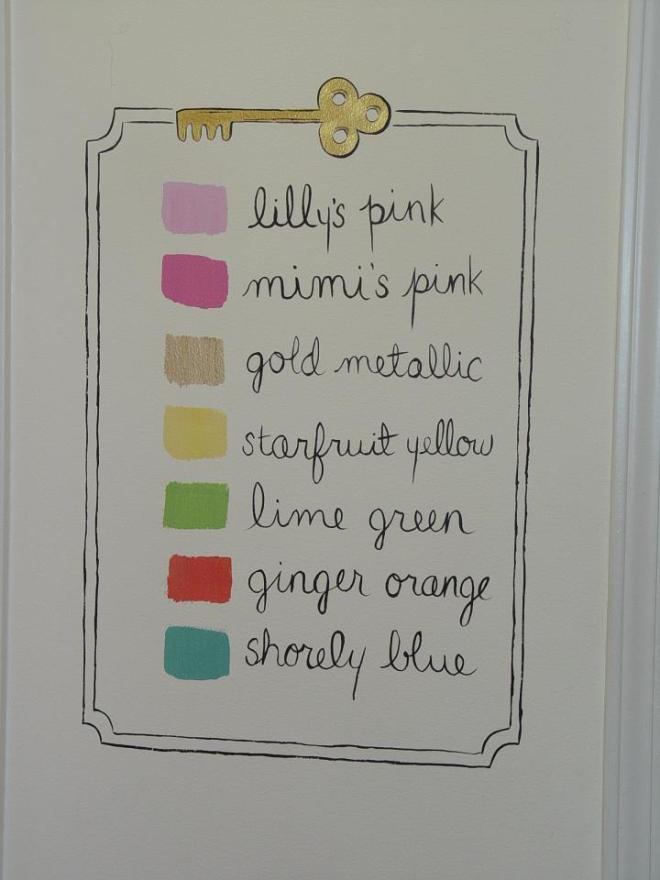 lilly's pink
mimi's pink
gold metallic
starfruit yellow
lime green
ginger orange
shorely blue